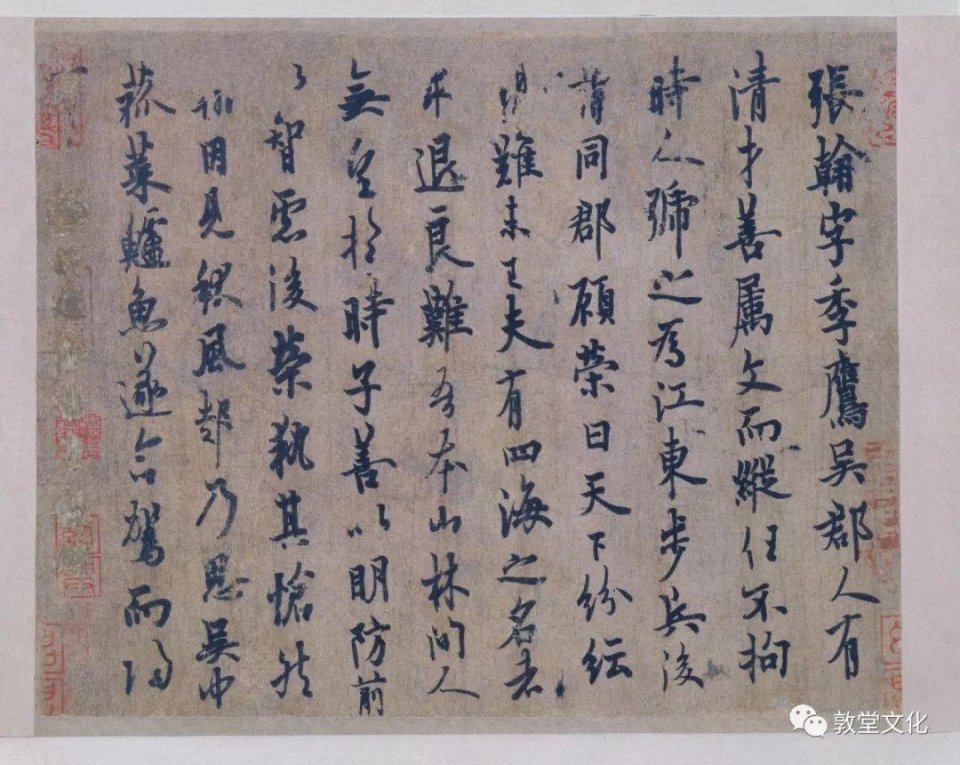 張翰字季鷹吳郡人有
清才善屬文而縱任不拘
時人號之為江東步兵後
謂同郡顧榮曰天下紛紜
難未已夫有四海之名者
求退良難吾本山林間人
無望於時子善以明防前
以智慮後榮執其愴然
翰因見秋風起乃思吳中
菰菜鱸魚遂命駕而歸
敦堂文化